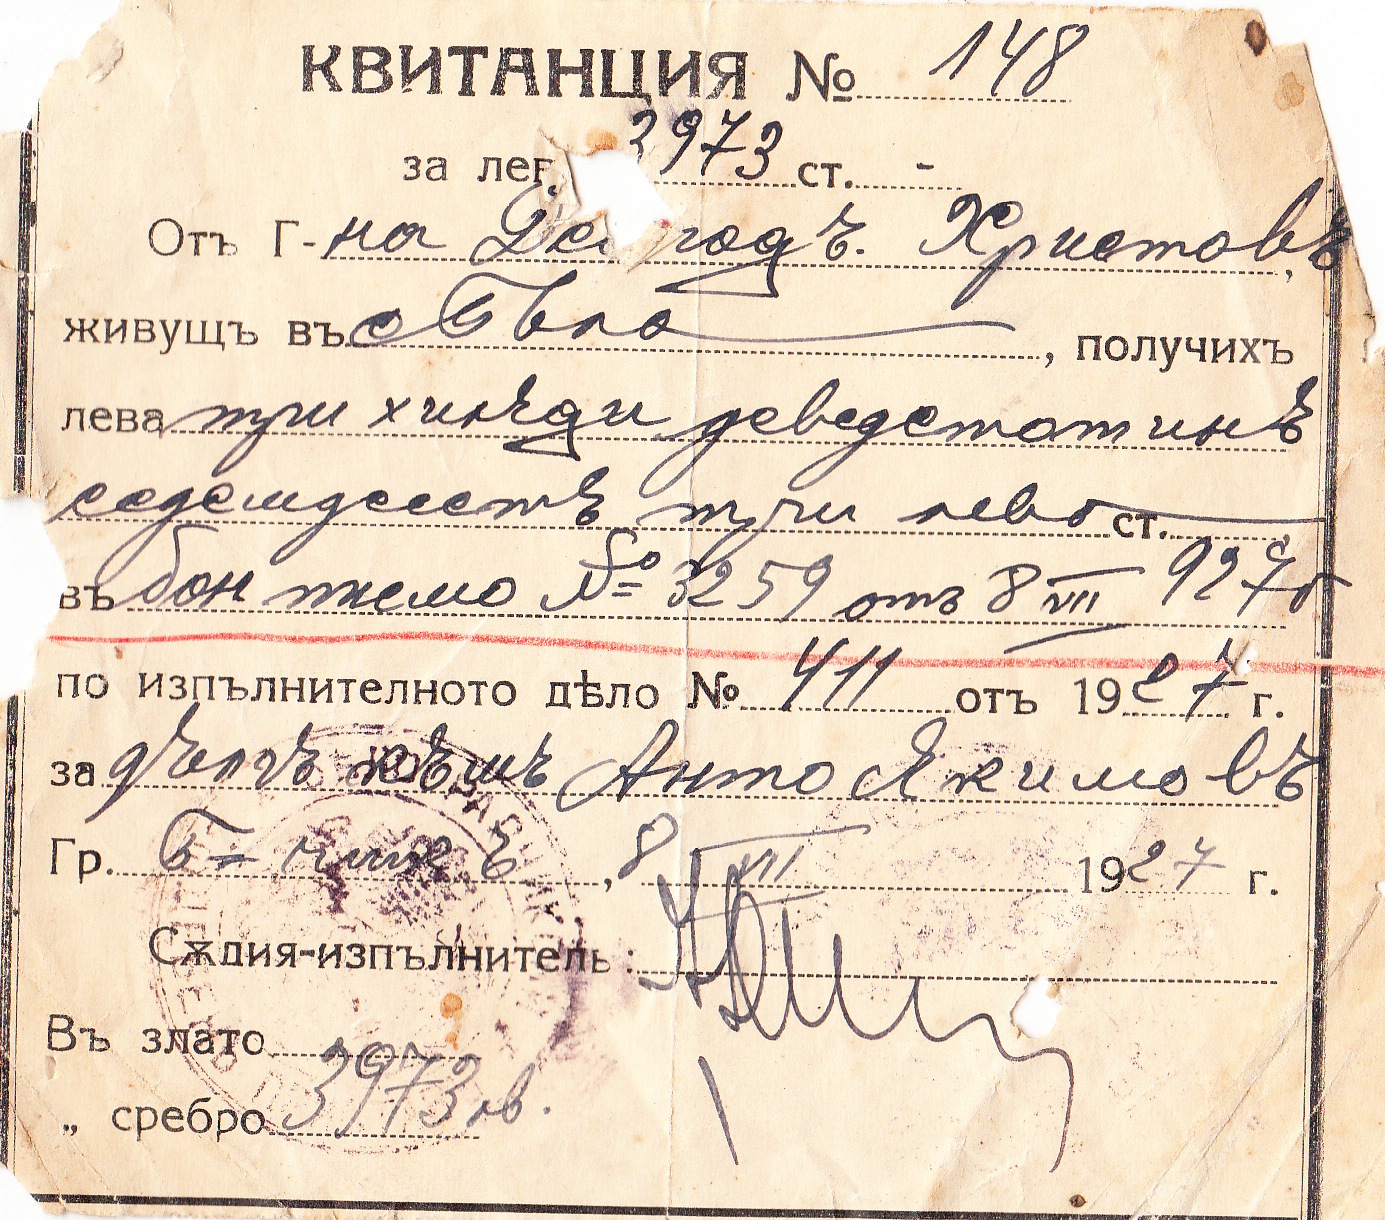 КВИТАНЦИЯ № 148
за лев 3973 ст. -
Отъ Г-на Христовъ,
живущъ въ с Бѣла, получихъ
лева три хиляди деведстотинъ
седемдесеть три лева ст.
въ бон писмо № 3259 отъ 8 VIII 927 г
по изпълнителното дѣло № 411 отъ 1927 г.
за дългъ къмъ Анто Якимовъ
Гр. , 8 VIII 1927 г.
Сѫдия-изпълнитель:
Въ злато
„ сребро 3973 лв.